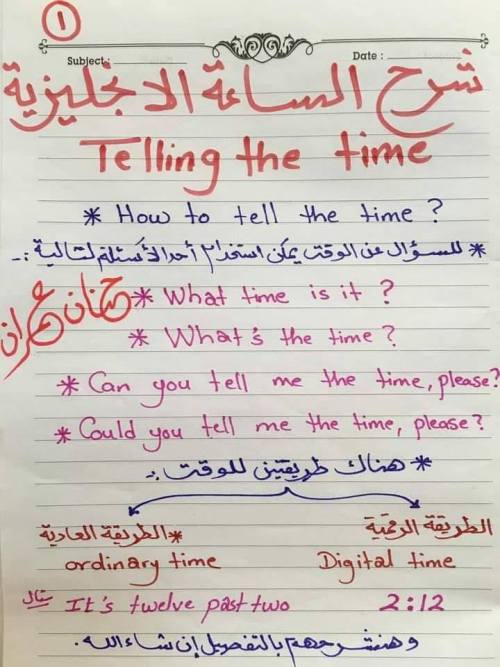 ١
Subject: Date:
شرح الساعة الانجليزية
Telling the time
* How to tell the time ?
* للسؤال عن الوقت يمكن استخدام أحد الأسئلة لتالية :-
حنان عمران
* What time is it ?
* What's the time ?
* Can you tell me the time, please?
* Could you tell me the time, please?
* هناك طريقتين للوقت :-
الطريقة الرقمية *الطريقة العادية
ordinary time Digital time
مثال It's twelve past two 2:12
وهنشرحهم بالتفصيل إن شاء الله.